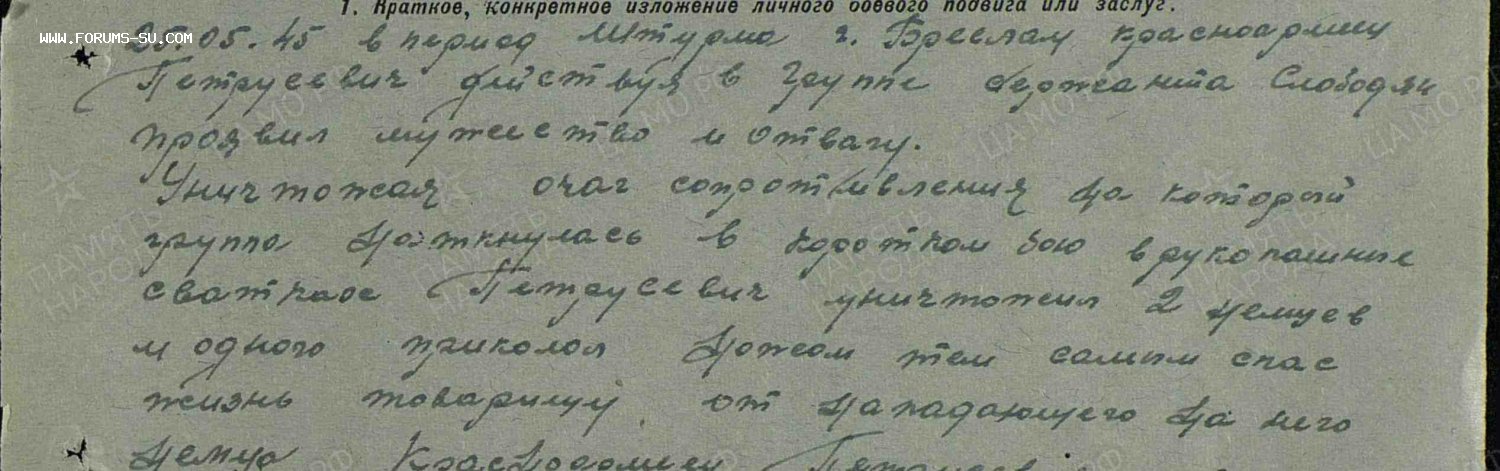 1. Краткое, конкретное изложение личного боевого подвига или заслуг.
WWW.FORUMS-SU.COM
05.45 в период штурма г. Бреслау красноармец
Петрусевич действуя в группе сержанта Слободян
проявил мужество и отвагу.
Уничтожая очаг сопротивления на который
группа наткнулась в коротком бою в рукопашные
сватках Петрусевич уничтожил 2 немцев
и одного приколол ножом тем самым спас
жизнь товарищу от нападающего на него
немца